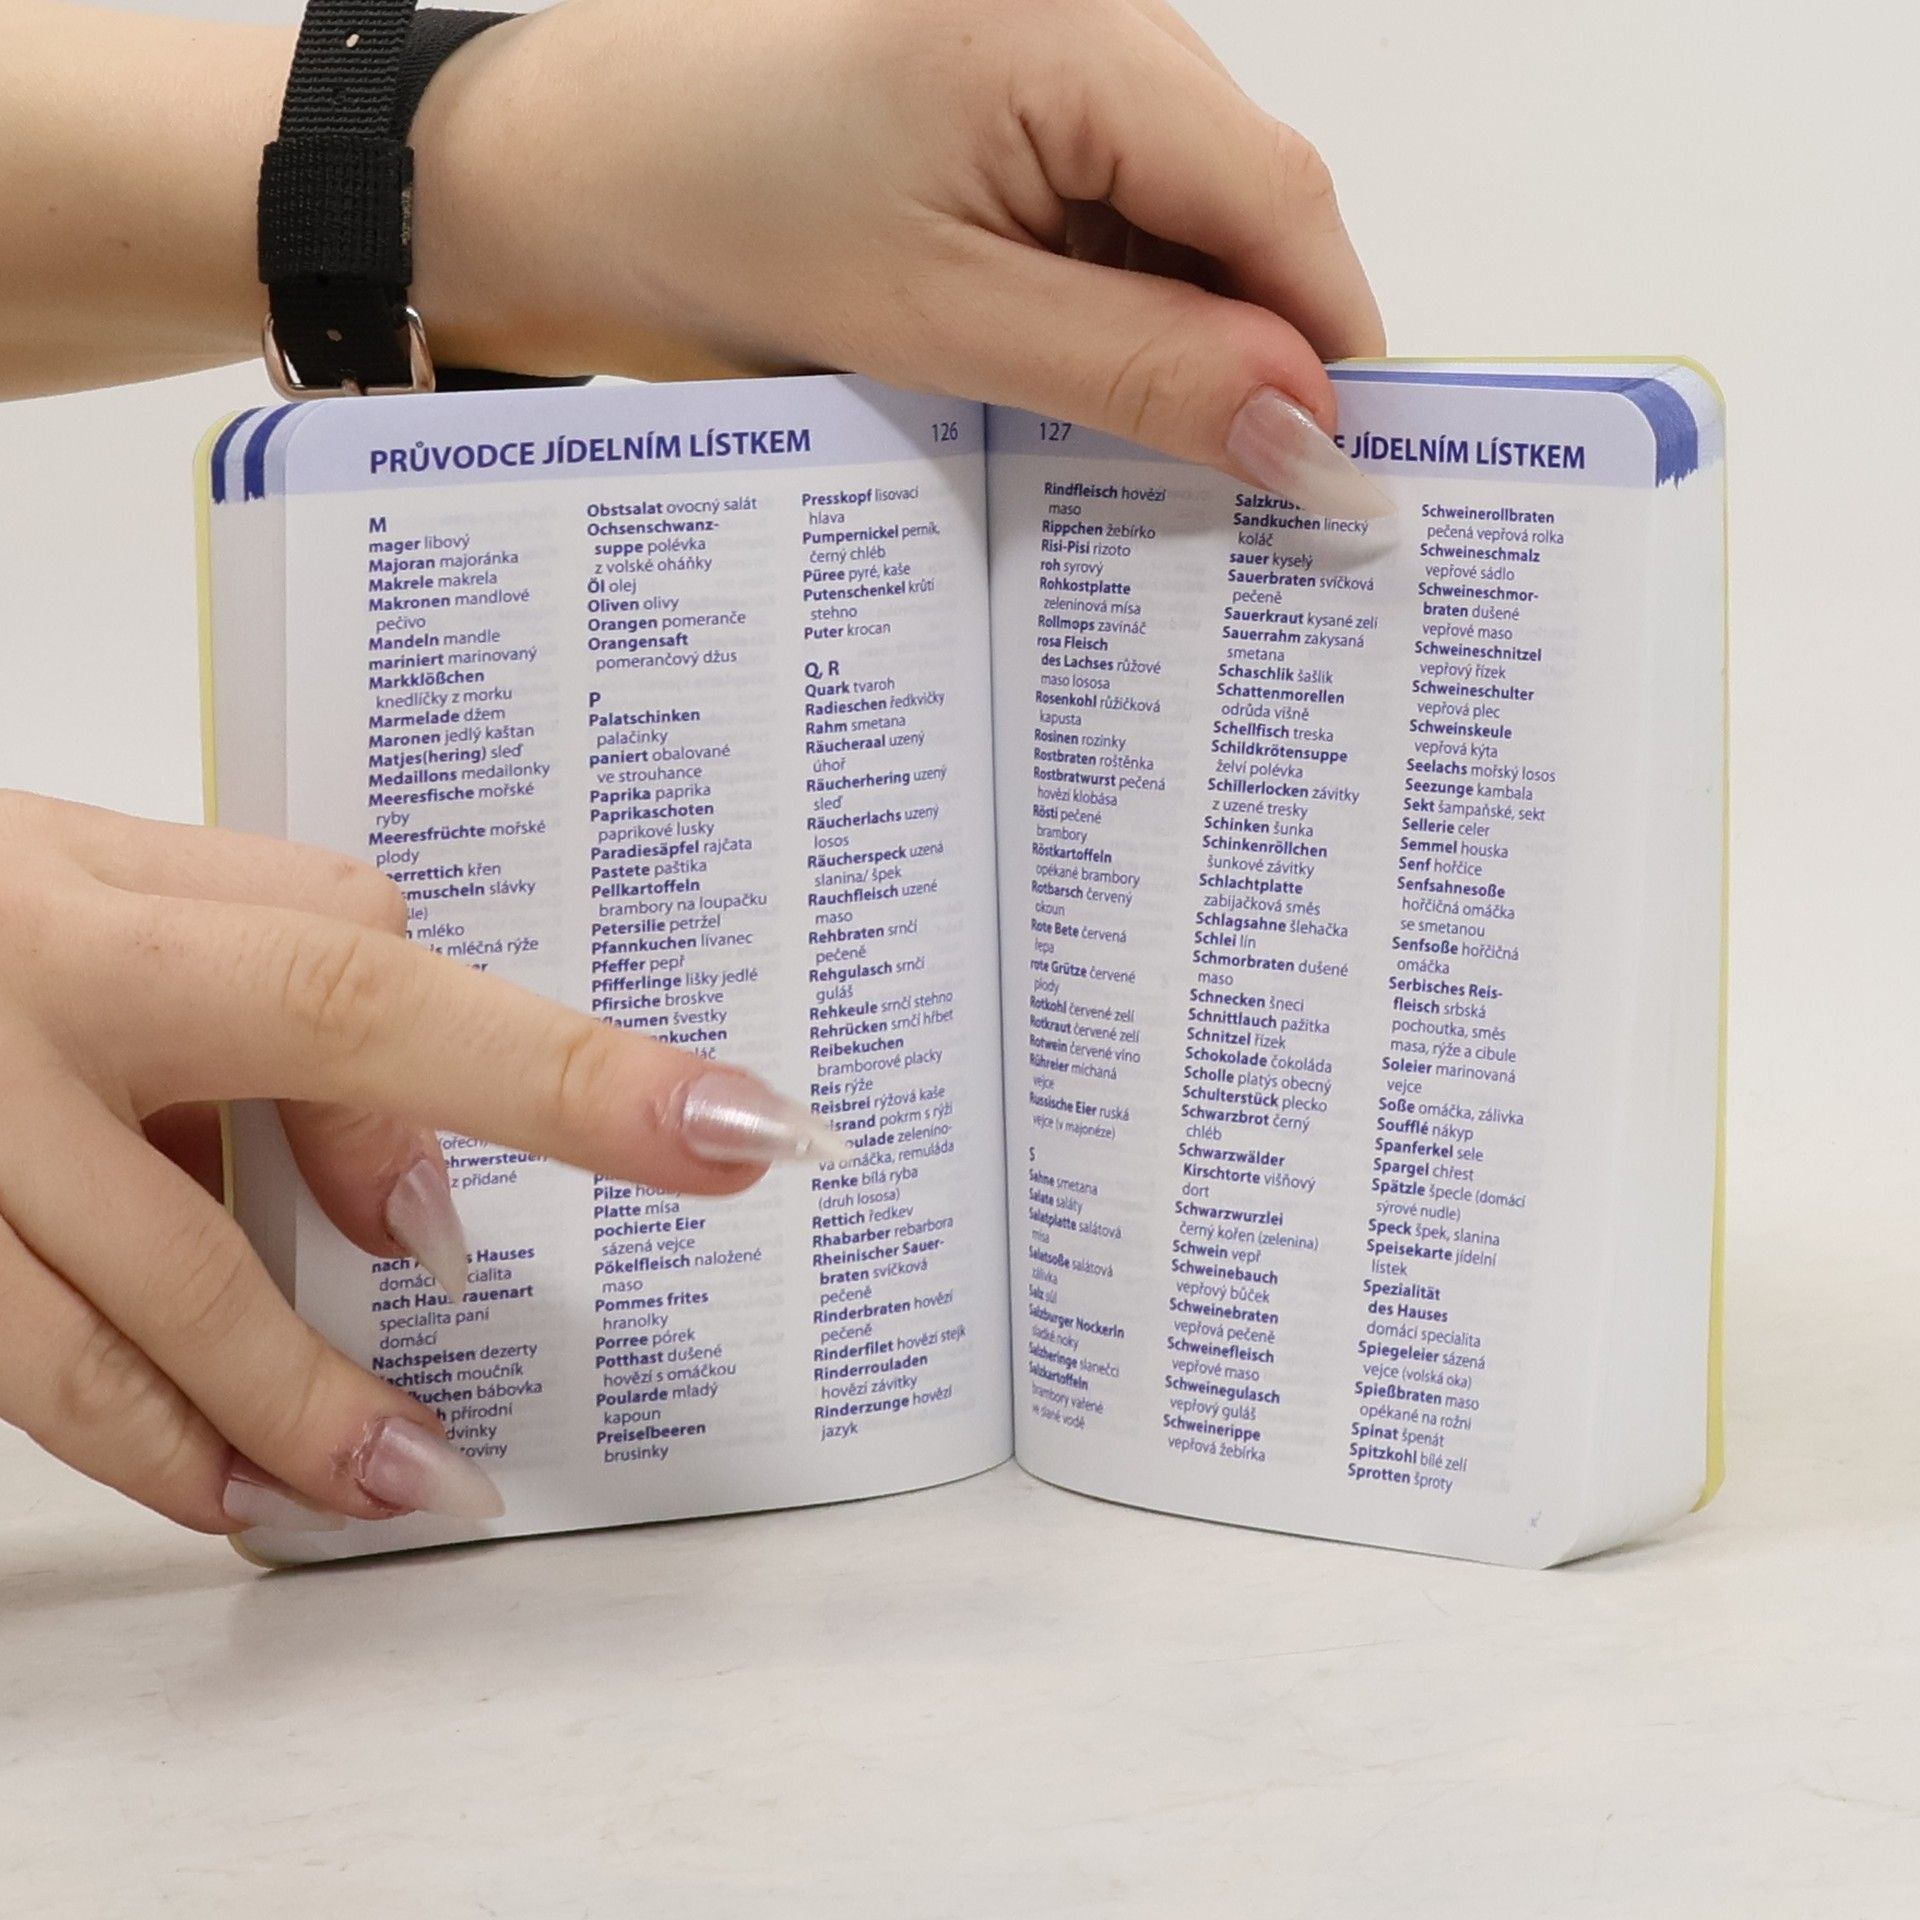 PRŮVODCE JÍDELNÍM LÍSTKEM
126
M
mager libový
Majoran majoránka
Makrele makrela
Makronen mandlové
pečivo
Mandeln mandle
mariniert marinovaný
Markklößchen
knedlíčky z morku
Marmelade džem
Maronen jedlý kaštan
Matjes(hering) sleď
Medaillons medailonky
Meeresfische mořské
ryby
Meeresfrüchte mořské
plody
křen
slávky
mléko
mléčná rýže
z přidané
nach Hauses
domácí
nach
specialita paní
domácí
Nachspeisen dezerty
moučník
bábovka
přírodní
Obstsalat ovocný salát
Ochsenschwanz-
suppe polévka
z volské oháňky
Öl olej
Oliven olivy
Orangen pomeranče
Orangensaft
pomerančový džus
P
Palatschinken
palačinky
paniert obalované
ve strouhance
Paprika paprika
Paprikaschoten
paprikové lusky
Paradiesäpfel rajčata
Pastete paštika
Pellkartoffeln
brambory na loupačku
Petersilie petržel
Pfannkuchen lívanec
Pfeffer pepř
Pfifferlinge lišky jedlé
Pfirsiche broskve
švestky
Pilze
Platte mísa
pochierte Eier
sázená vejce
Pökelfleisch naložené
maso
Pommes frites
hranolky
Porree pórek
Potthast dušené
hovězí s omáčkou
Poularde mladý
kapoun
Preiselbeeren
brusinky
Presskopf lisovací
hlava
Pumpernickel perník,
černý chléb
Püree pyré, kaše
Putenschenkel krůtí
stehno
Puter krocan
Q, R
Quark tvaroh
Radieschen ředkvičky
Rahm smetana
Räucheraal uzený
úhoř
Räucherhering uzený
sleď
Räucherlachs uzený
losos
Räucherspeck uzená
slanina/ špek
Rauchfleisch uzené
maso
Rehbraten srnčí
pečeně
Rehgulasch srnčí
guláš
Rehkeule srnčí stehno
Rehrücken srnčí hřbet
Reibekuchen
bramborové placky
Reis rýže
Reisbrei rýžová kaše
pokrm s rýží
zelenino-
vá omáčka, remuláda
Renke bílá ryba
(druh lososa)
Rettich ředkev
Rhabarber rebarbora
Rheinischer Sauer-
braten svíčková
pečeně
Rinderbraten hovězí
pečeně
Rinderfilet hovězí stejk
Rinderrouladen
hovězí závitky
Rinderzunge hovězí
jazyk
127
JÍDELNÍM LÍSTKEM
Rindfleisch hovězí
maso
Rippchen žebírko
Risi-Pisi rizoto
roh syrový
Rohkostplatte
zeleninová mísa
Rollmops zavináč
rosa Fleisch
des Lachses růžové
maso lososa
Rosenkohl růžičková
kapusta
Rosinen rozinky
Rostbraten roštěnka
Rostbratwurst pečená
hovězí klobása
Rösti pečené
brambory
Röstkartoffeln
opékané brambory
Rotbarsch červený
okoun
Rote Bete červená
řepa
rote Grütze červené
plody
Rotkohl červené zelí
Rotkraut červené zelí
Rotwein červené víno
Rühreier míchaná
vejce
Russische Eier ruská
vejce (v majonéze)
S
Sahne smetana
Salate saláty
Salatplatte salátová
mísa
Salatsoße salátová
zálivka
Salz sůl
Salzburger Nockerln
sladké noky
Salzheringe slanečci
Salzkartoffeln
brambory vařené
ve slané vodě
Sandkuchen linecký
koláč
sauer kyselý
Sauerbraten svíčková
pečeně
Sauerkraut kysané zelí
Sauerrahm zakysaná
smetana
Schaschlik šašlik
Schattenmorellen
odrůda višně
Schellfisch treska
Schildkrötensuppe
želví polévka
Schillerlocken závitky
z uzené tresky
Schinken šunka
Schinkenröllchen
šunkové závitky
Schlachtplatte
zabijačková směs
Schlagsahne šlehačka
Schlei lín
Schmorbraten dušené
maso
Schnecken šneci
Schnittlauch pažitka
Schnitzel řízek
Schokolade čokoláda
Scholle platýs obecný
Schulterstück plecko
Schwarzbrot černý
chléb
Schwarzwälder
Kirschtorte višňový
dort
Schwarzwurzlei
černý kořen (zelenina)
Schwein vepř
Schweinebauch
vepřový bůček
Schweinebraten
vepřová pečeně
Schweinefleisch
vepřové maso
Schweinegulasch
vepřový guláš
Schweinerippe
vepřová žebírka
Schweinerollbraten
pečená vepřová rolka
Schweineschmalz
vepřové sádlo
Schweineschmor-
braten dušené
vepřové maso
Schweineschnitzel
vepřový řízek
Schweineschulter
vepřová plec
Schweinskeule
vepřová kýta
Seelachs mořský losos
Seezunge kambala
Sekt šampaňské, sekt
Sellerie celer
Semmel houska
Senf hořčice
Senfsahnesoße
hořčičná omáčka
se smetanou
Senfsoße hořčičná
omáčka
Serbisches Reis-
fleisch srbská
pochoutka, směs
masa, rýže a cibule
Soleier marinovaná
vejce
Soße omáčka, zálivka
Soufflé nákyp
Spanferkel sele
Spargel chřest
Spätzle špecle (domácí
sýrové nudle)
Speck špek, slanina
Speisekarte jídelní
lístek
Spezialität
des Hauses
domácí specialita
Spiegeleier sázená
vejce (volská oka)
Spießbraten maso
opékané na rožni
Spinat špenát
Spitzkohl bílé zelí
Sprotten šproty